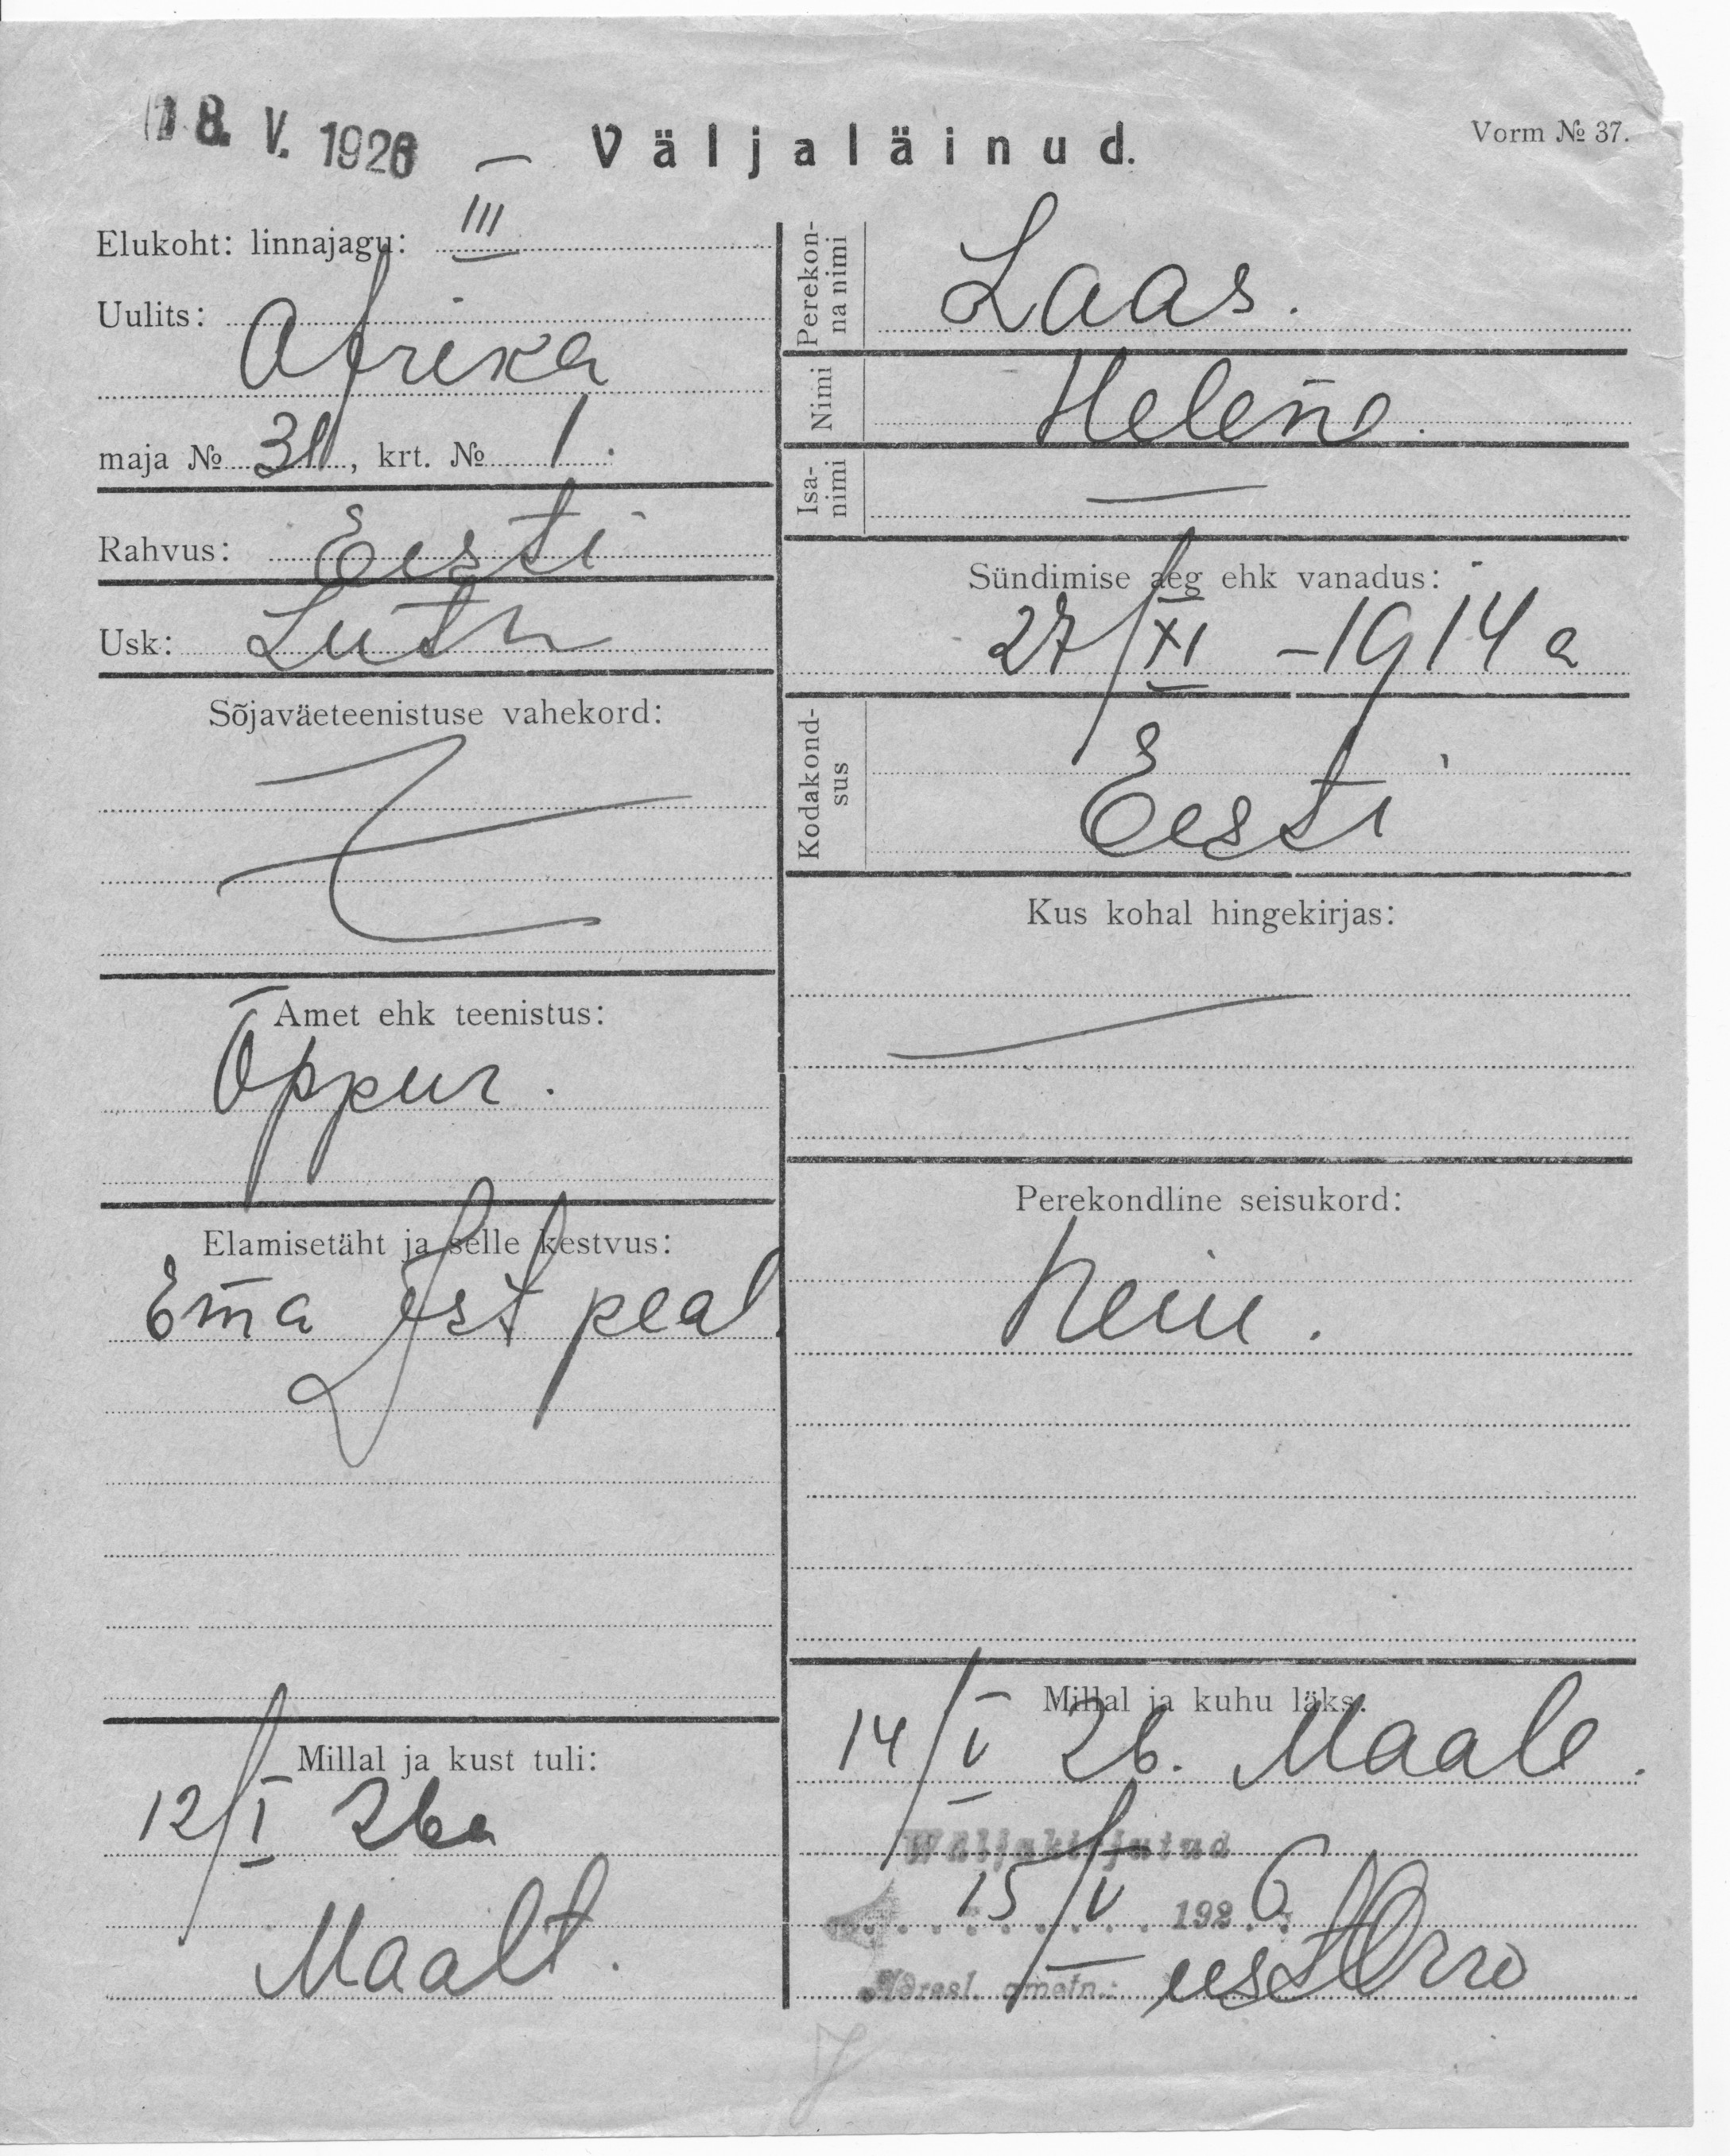 18. V. 1926 — Väljaläinud.
Vorm № 37.
Elukoht: linnajagu: III
Uulits:
Afrika
maja № 31, krt. № 1.
Rahvus: Eesti
Usk: Luth
Sõjaväeteenistuse vahekord:
Amet ehk teenistus:
Õppur.
Elamisetäht ja selle kestvus:
Ema peal
Millal ja kust tuli:
12/I 26a
Maalt.
Perekonna nimi
Laas.
Nimi
Helene.
Isanimi —
Sündimise aeg ehk vanadus:
27/XI — 1914 a
Kodakondsus
Eesti
Kus kohal hingekirjas:
Perekondline seisukord:
Millal ja kuhu läks.
14/V 26. Maale.
Wäljakirjutud
15/V 1926
Adresl. ametn.: Orro